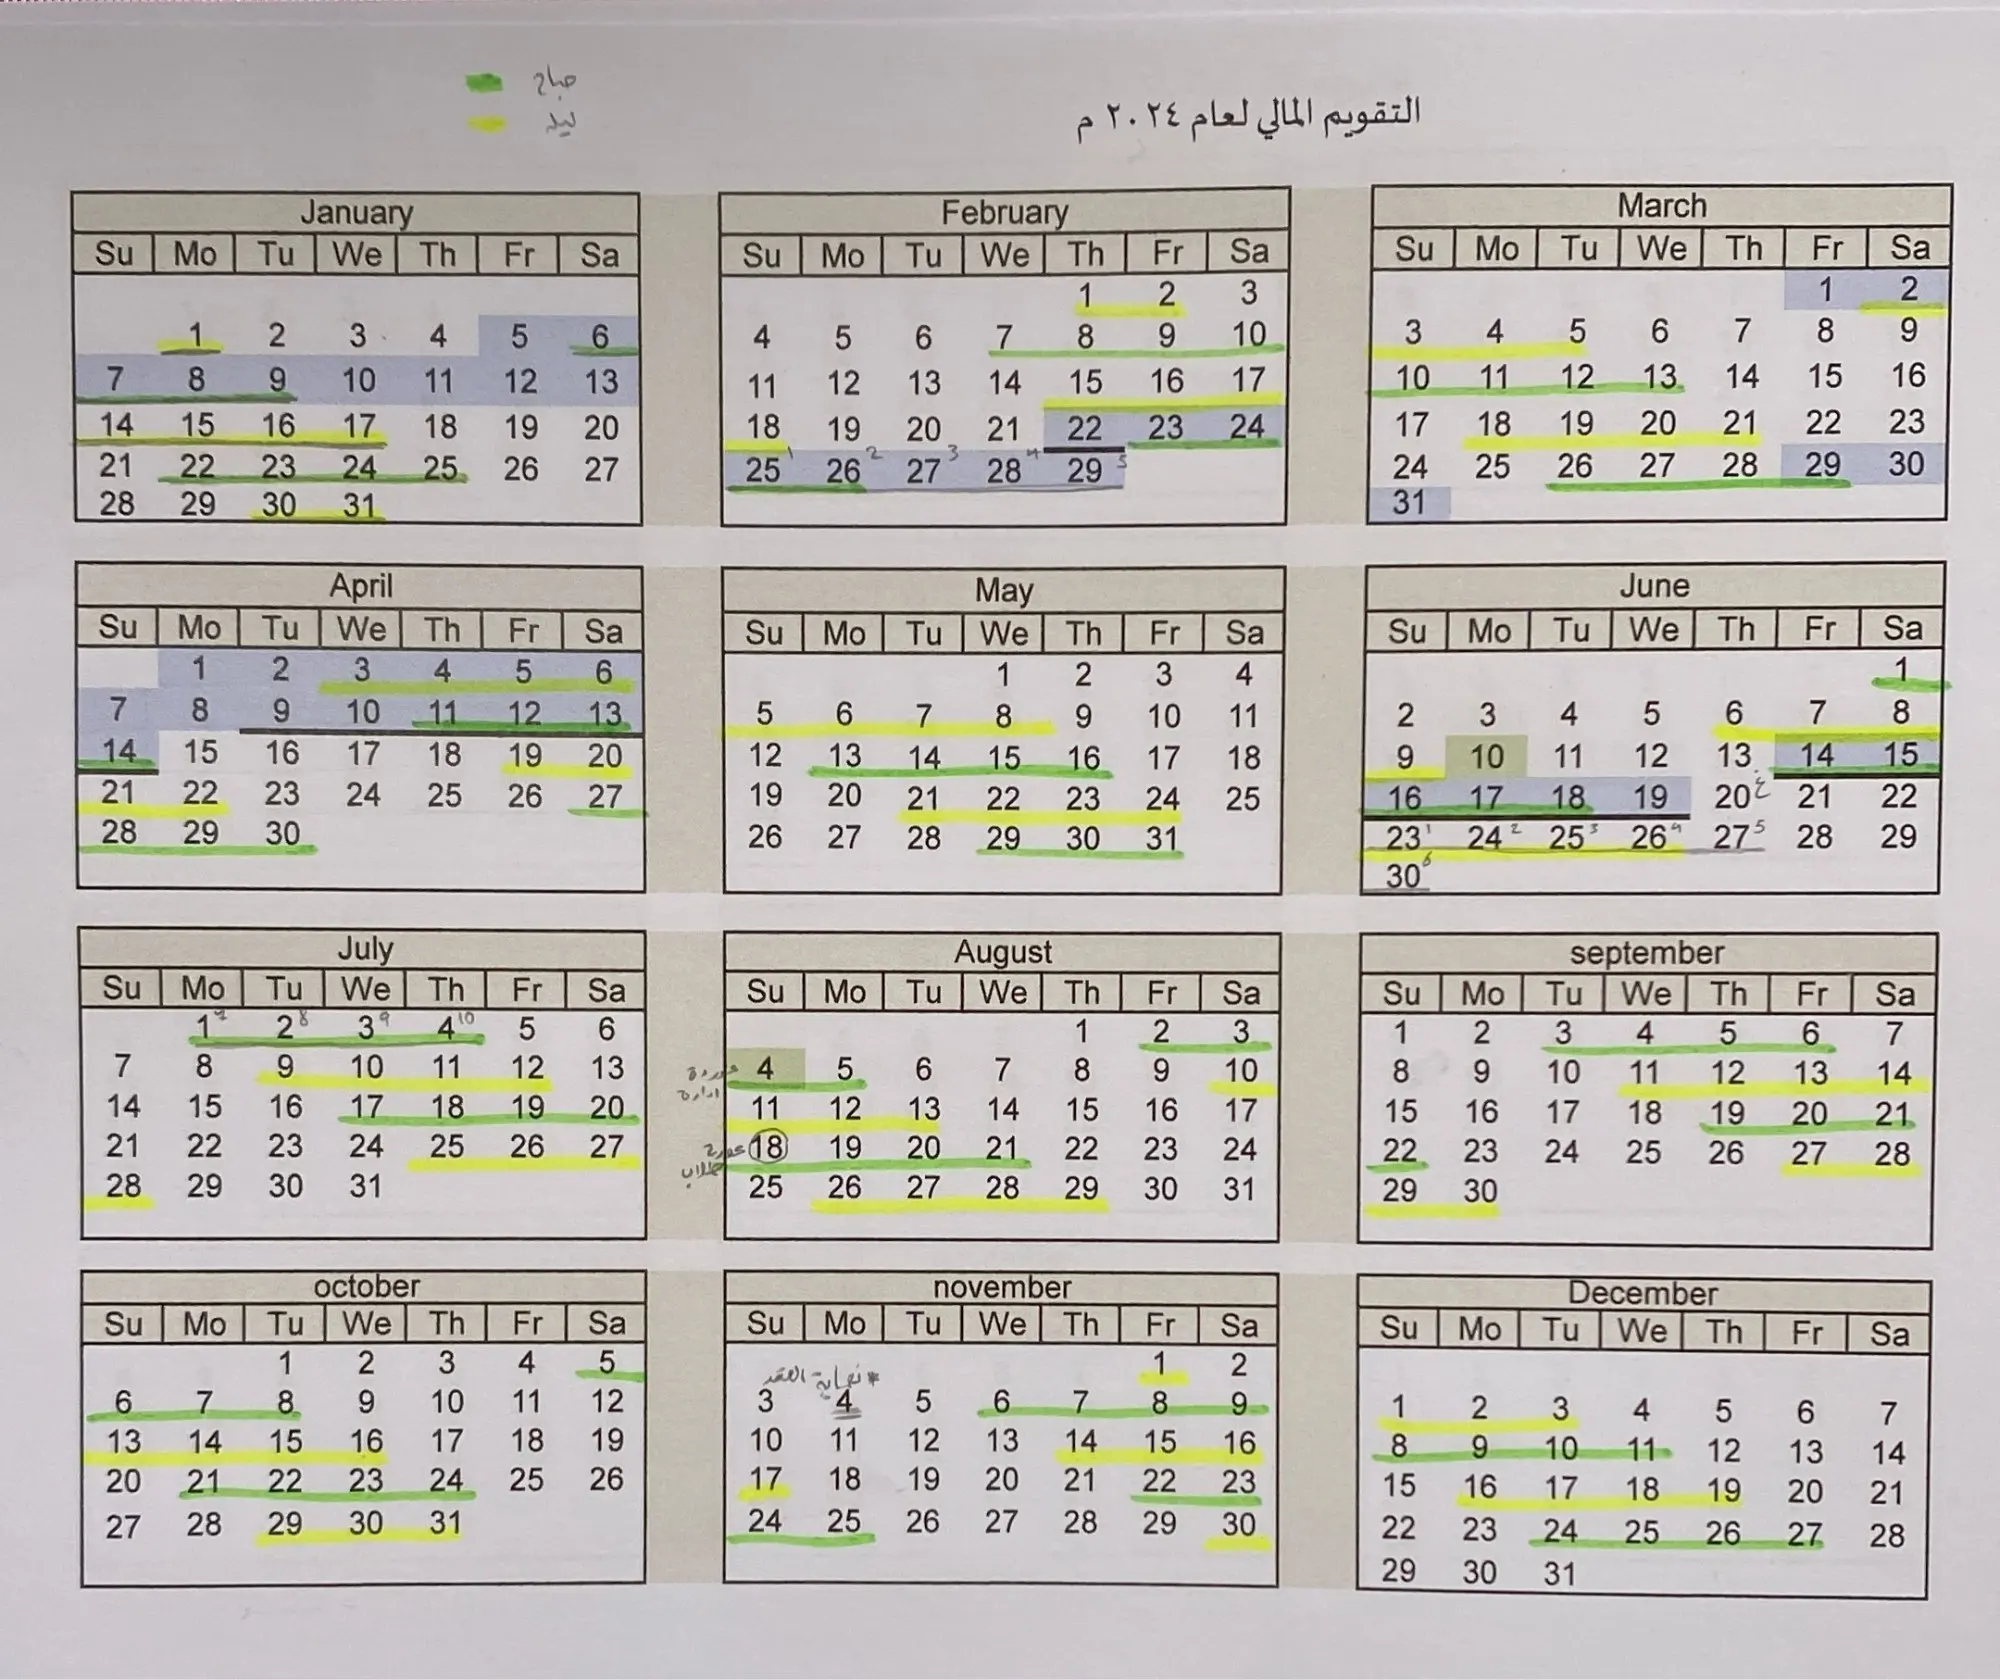 صباح
ليل
التقويم المالي لعام ٢٠٢٤ م
January
Su Mo Tu We Th Fr Sa
1 2 3 4 5 6
7 8 9 10 11 12 13
14 15 16 17 18 19 20
21 22 23 24 25 26 27
28 29 30 31
February
Su Mo Tu We Th Fr Sa
1 2 3
4 5 6 7 8 9 10
11 12 13 14 15 16 17
18 19 20 21 22 23 24
25 1 26 2 27 3 28 4 29 5
March
Su Mo Tu We Th Fr Sa
1 2
3 4 5 6 7 8 9
10 11 12 13 14 15 16
17 18 19 20 21 22 23
24 25 26 27 28 29 30
31
April
Su Mo Tu We Th Fr Sa
1 2 3 4 5 6
7 8 9 10 11 12 13
14 15 16 17 18 19 20
21 22 23 24 25 26 27
28 29 30
May
Su Mo Tu We Th Fr Sa
1 2 3 4
5 6 7 8 9 10 11
12 13 14 15 16 17 18
19 20 21 22 23 24 25
26 27 28 29 30 31
June
Su Mo Tu We Th Fr Sa
1
2 3 4 5 6 7 8
9 10 11 12 13 14 15
16 17 18 19 20 ع 21 22
23 1 24 2 25 3 26 4 27 5 28 29
30 6
July
Su Mo Tu We Th Fr Sa
1 7 2 8 3 9 4 10 5 6
7 8 9 10 11 12 13
14 15 16 17 18 19 20
21 22 23 24 25 26 27
28 29 30 31
August
Su Mo Tu We Th Fr Sa
1 2 3
عودة 4 5 6 7 8 9 10
ادارة
11 12 13 14 15 16 17
18 19 20 21 22 23 24
طلاب
25 26 27 28 29 30 31
september
Su Mo Tu We Th Fr Sa
1 2 3 4 5 6 7
8 9 10 11 12 13 14
15 16 17 18 19 20 21
22 23 24 25 26 27 28
29 30
october
Su Mo Tu We Th Fr Sa
1 2 3 4 5
6 7 8 9 10 11 12
13 14 15 16 17 18 19
20 21 22 23 24 25 26
27 28 29 30 31
november
Su Mo Tu We Th Fr Sa
1 2
* نهاية العقد
3 4 5 6 7 8 9
10 11 12 13 14 15 16
17 18 19 20 21 22 23
24 25 26 27 28 29 30
December
Su Mo Tu We Th Fr Sa
1 2 3 4 5 6 7
8 9 10 11 12 13 14
15 16 17 18 19 20 21
22 23 24 25 26 27 28
29 30 31